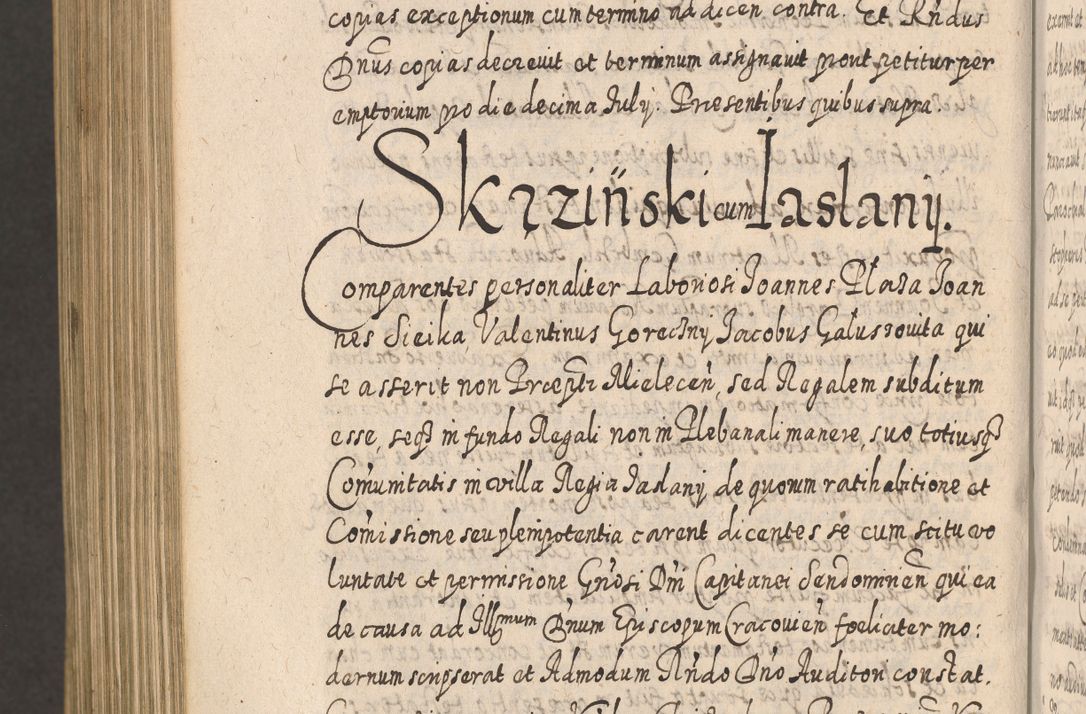 copias exceptionum cum termino ad dicen contra. Et Rńdus
Dńus copias decreuit et terminum assignauit prout petitur per
emptorium pro die decima Julij. Presentibus quibus supra.
Skąziński cum Iaslany.
Comparentes personaliter Laboriosi Joannes Płaza Joan
nes Sieika Valentinus Goreczny Jacobus Galuszowita qui
se asserit non Prcepti Mielecen, sed Regalem subditum
esse, seqꝫ in fundo Regali non in Plebanali manere, suo totiusqꝫ
Comunitatis in villa Regia Jaslany de quorum ratihabitione et
Comissione seu plenipotentia carent dicentes se cum scitu vo
luntate et permissione Gńosi Dńi Capitanei Sendomiren qui ea
de causa ad Illmum Dńum Episcopum Cracovień foeliciter mo:
dernum scripserat et Admodum Rńdo Dńo Auditori constat.